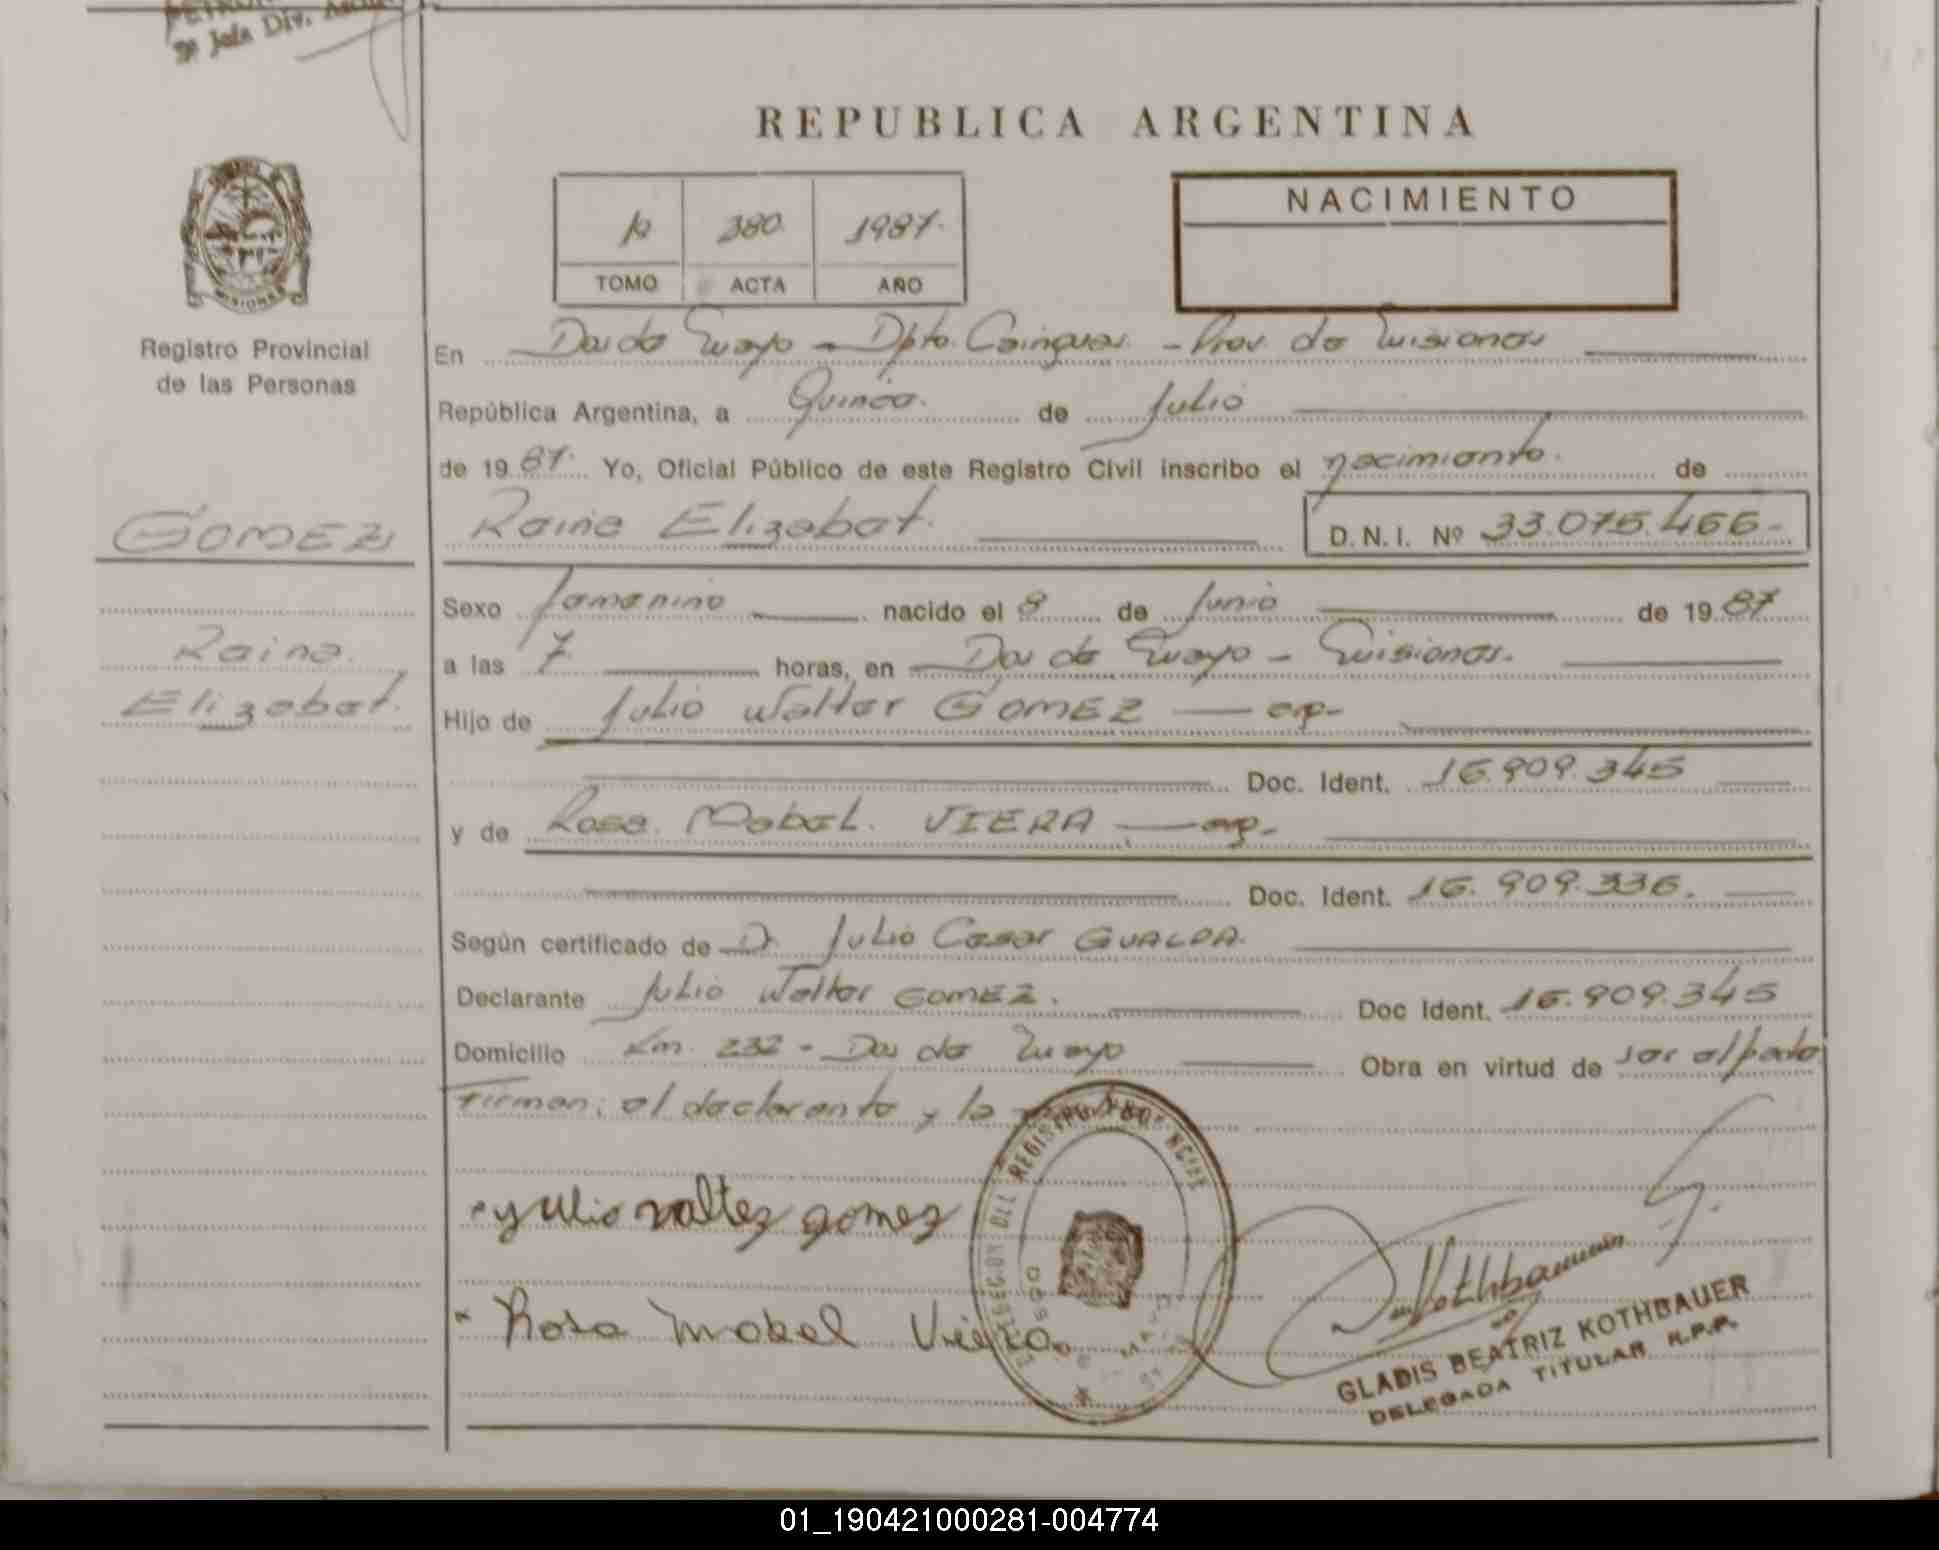 9º Jefe Div.
REPUBLICA ARGENTINA
1º 380. 1987.
TOMO ACTA AÑO
NACIMIENTO
MISIONES
Registro Provincial
de las Personas
En Dos de Mayo - Dpto. Cainguas. - Prov. de Misiones
República Argentina, a Quince. de Julio
de 19 87. Yo, Oficial Público de este Registro Civil inscribo el nacimiento. de
GOMEZ
Raine Elizabet. D.N.I. Nº 33.075.466-
Sexo femenino nacido el 8 de Junio de 19 87
Raine.
Elizabet.
a las 7 horas, en Dos de Mayo - Misiones.
Hijo de Julio Walter GOMEZ - arg-
Doc. Ident. 16.909.345
y de Rosa. Mabel. VIERA - arg-
Doc. Ident. 16.909.336.
Según certificado de Dr Julio Cesar GUALDA.
Declarante Julio Walter GOMEZ. Doc Ident. 16.909.345
Domicilio Km. 232 - Dos de Mayo Obra en virtud de ser el padre
Firman: el declarante y la
yulio valtez gomez
Rosa mabel Viera
Kothbauer
GLADIS BEATRIZ KOTHBAUER
DELEGADA TITULAR R.P.P.
01_190421000281-004774